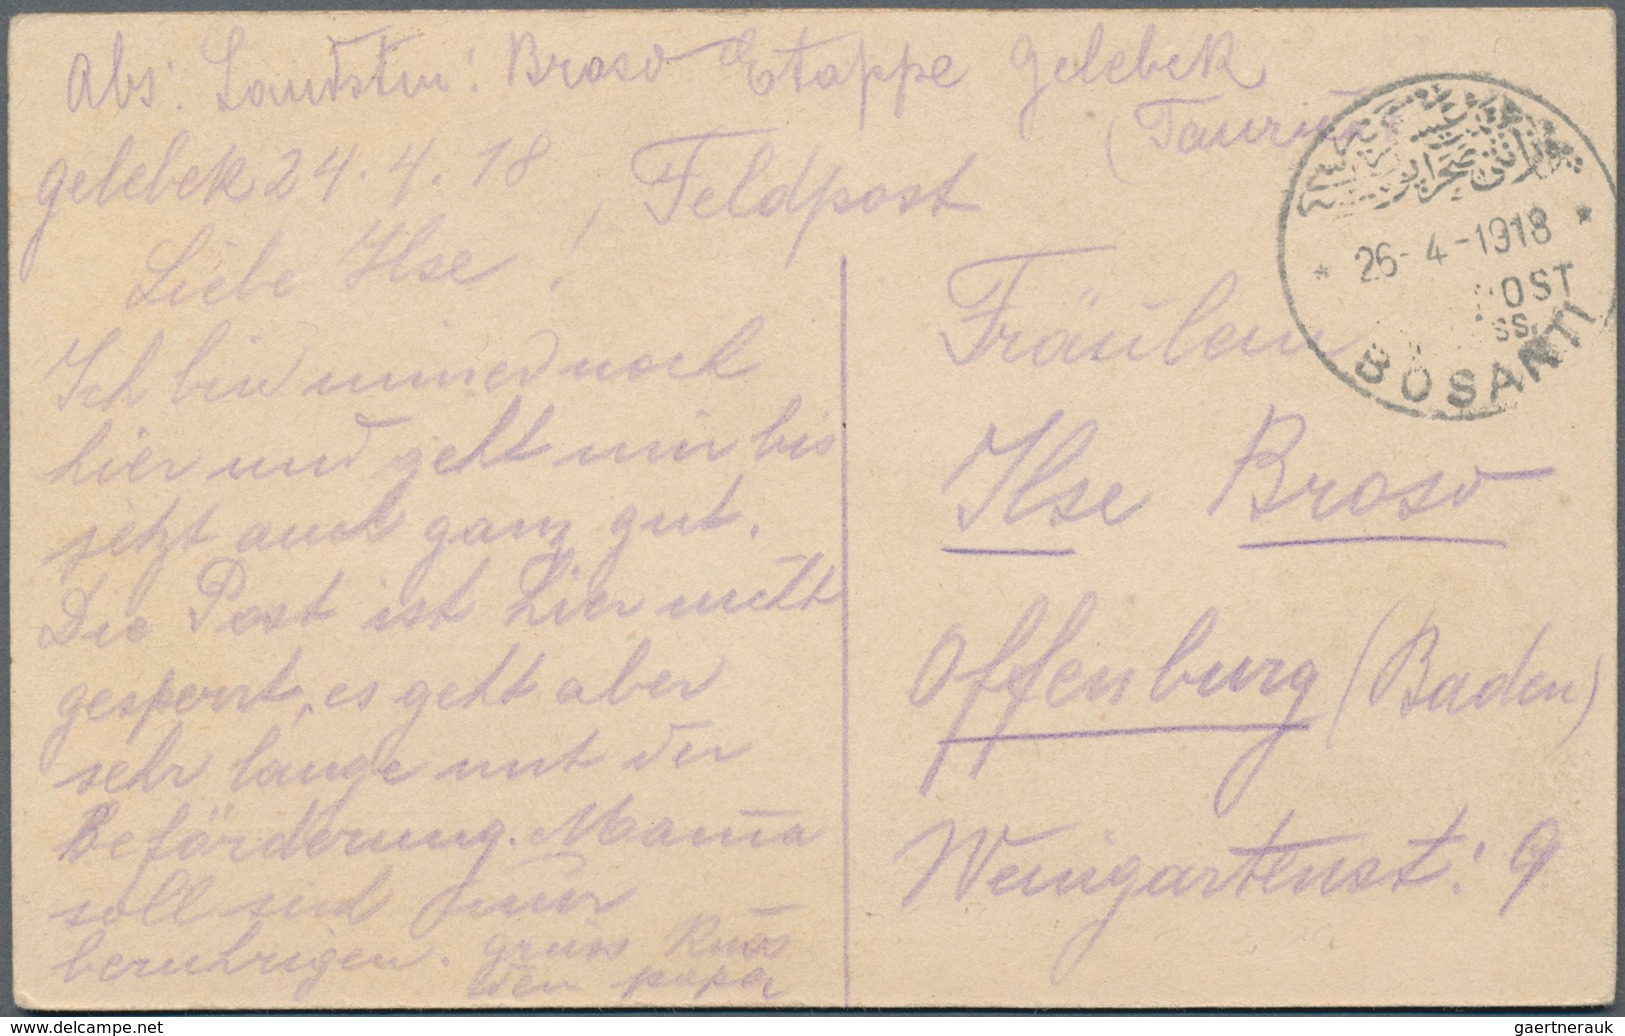 Abs: Landstm: Broso Etappe Gelebek
(Taurus)
Gelebek 24.4.18, Feldpost
Liebe Ilse!
Ich bin immer noch
hier und geht mir bis
jetzt auch ganz gut.
Die Post ist hier nicht
gesperrt, es geht aber
sehr lange mit der
Beförderung. Mama
soll sich nur
beruhrigen. Gruss Kuss
dein papa
26-4-1918
POST
BOSANTI
Fräulein
Ilse Broso
Offenburg (Baden)
Weingartenst: 9
gaertnerauk